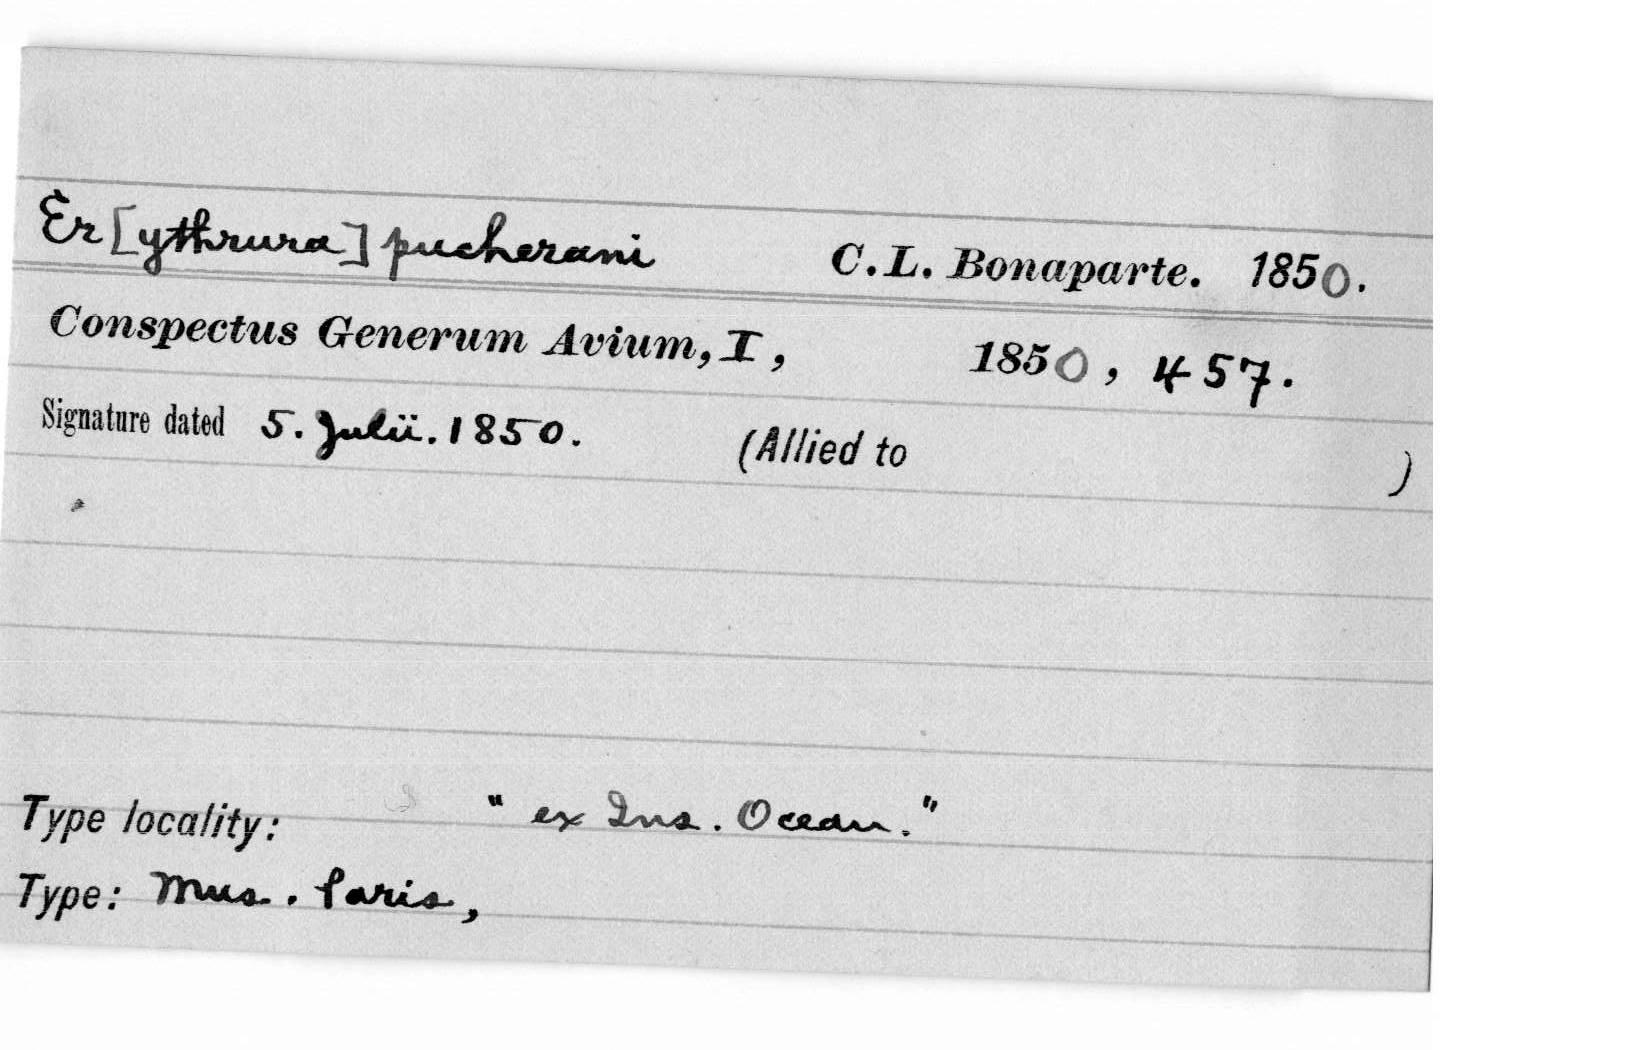 Er[ythrura] pucherani C.L. Bonaparte. 1850.
Conspectus Generum Avium, I, 1850, 457.
Signature dated 5. Julii. 1850. (Allied to )
Type locality: " ex Ins. Ocean."
Type: Mus. Paris,